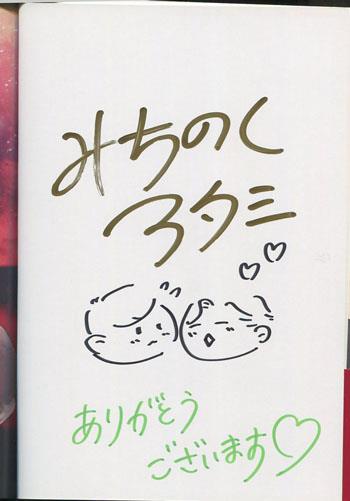 みちのく
アタミ
ありがとう
ございます♡